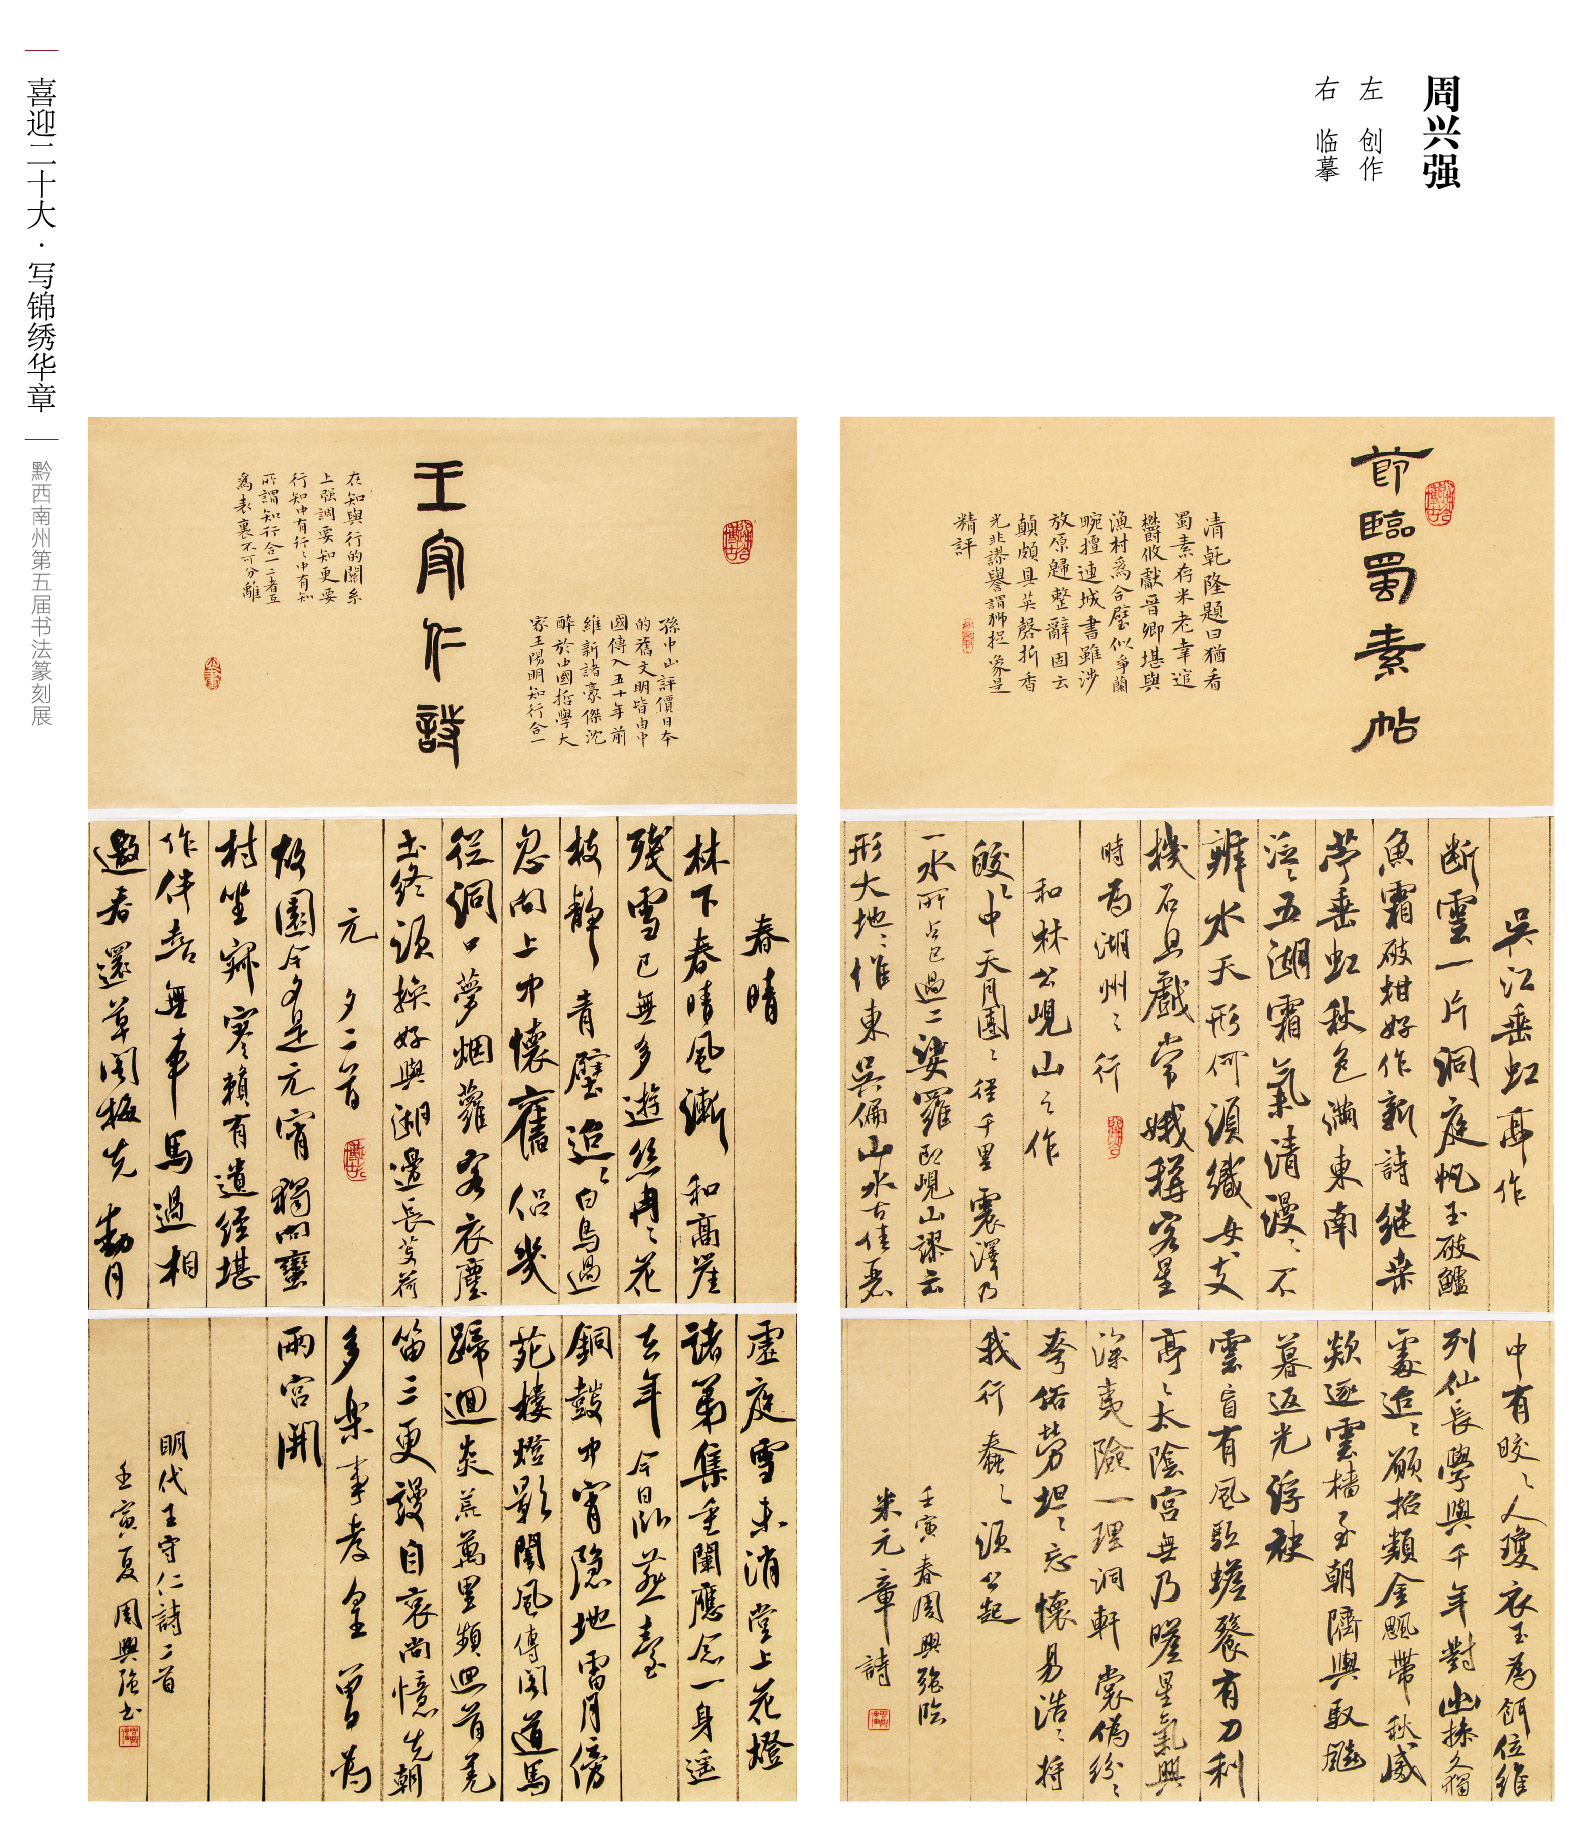 喜迎二十大·写锦绣华章
黔西南州第五届书法篆刻展
周兴强
左 创作
右 临摹
王守仁詩
孫中山評價日本
的舊文明皆由中
國傳入五十年前
維新諸豪傑沈
醉於中國哲學大
家王陽明知行合一
在知與行的關系
上强調要知更要
行知中有行行中有知
所謂知行合一二者互
爲表裏不可分離
春晴
林下春晴風漸和高崖
殘雪已無多遊絲冉冉花
枝静青壁迢迢白鳥過
忽向上中懷舊侣幾
從洞口夢烟蘿客衣塵
土終須换好與湖邊長芰荷
元夕二首
故園今夕是元宵獨向蠻
村坐寂寥賴有遺經堪
作伴喜無車馬過相
邀春還草閣梅先動月
虚庭雪未消堂上花燈
諸弟集重闈應念一身遥
去年今日卧燕臺
銅鼓中宵隱地雷月傍
苑樓燈影闇風傳閣道馬
蹄迴炎荒萬里頻迴首羌
笛三更謾自哀尚憶先朝
多樂事孝皇曾爲
兩宫開
明代王守仁詩二首
壬寅夏周興强书
節臨蜀素帖
清乾隆題曰猶看
蜀素存米老幸追
欝攸獻晋卿堪與
漁村爲合璧似爭蘭
畹擅連城書雖涉
放原歸整辭固云
顛頗具英磬折香
光非謬譽謂獅捉象是
精評
吴江垂虹亭作
断雲一片洞庭帆玉破鱸
魚霜破柑好作新詩繼桑
苧垂虹秋色滿東南
泛泛五湖霜氣清漫漫不
辨水天形何須織女支
機石且戲常娥稱客星
時爲湖州之行
和林公峴山之作
皎皎中天月團團徑千里震澤乃
一水所占已過二娑羅即峴山謬云
形大地惟東吴偏山水古佳麗
中有皎皎人瓊衣玉爲餌位維
列仙長學與千年對幽操久獨
處迢迢願招類金颸帶秋威
欻逐雲檣至朝隮輿馭飈
暮返光浮袂
雲盲有風驅蟾餮有刀利
亭亭太陰宫無乃瞻星氣興
深夷險一理洞軒裳偽紛紛
夸俗勞坦坦忘懷易浩浩將
我行蠢蠢須公起
米元章詩
壬寅春周興强臨